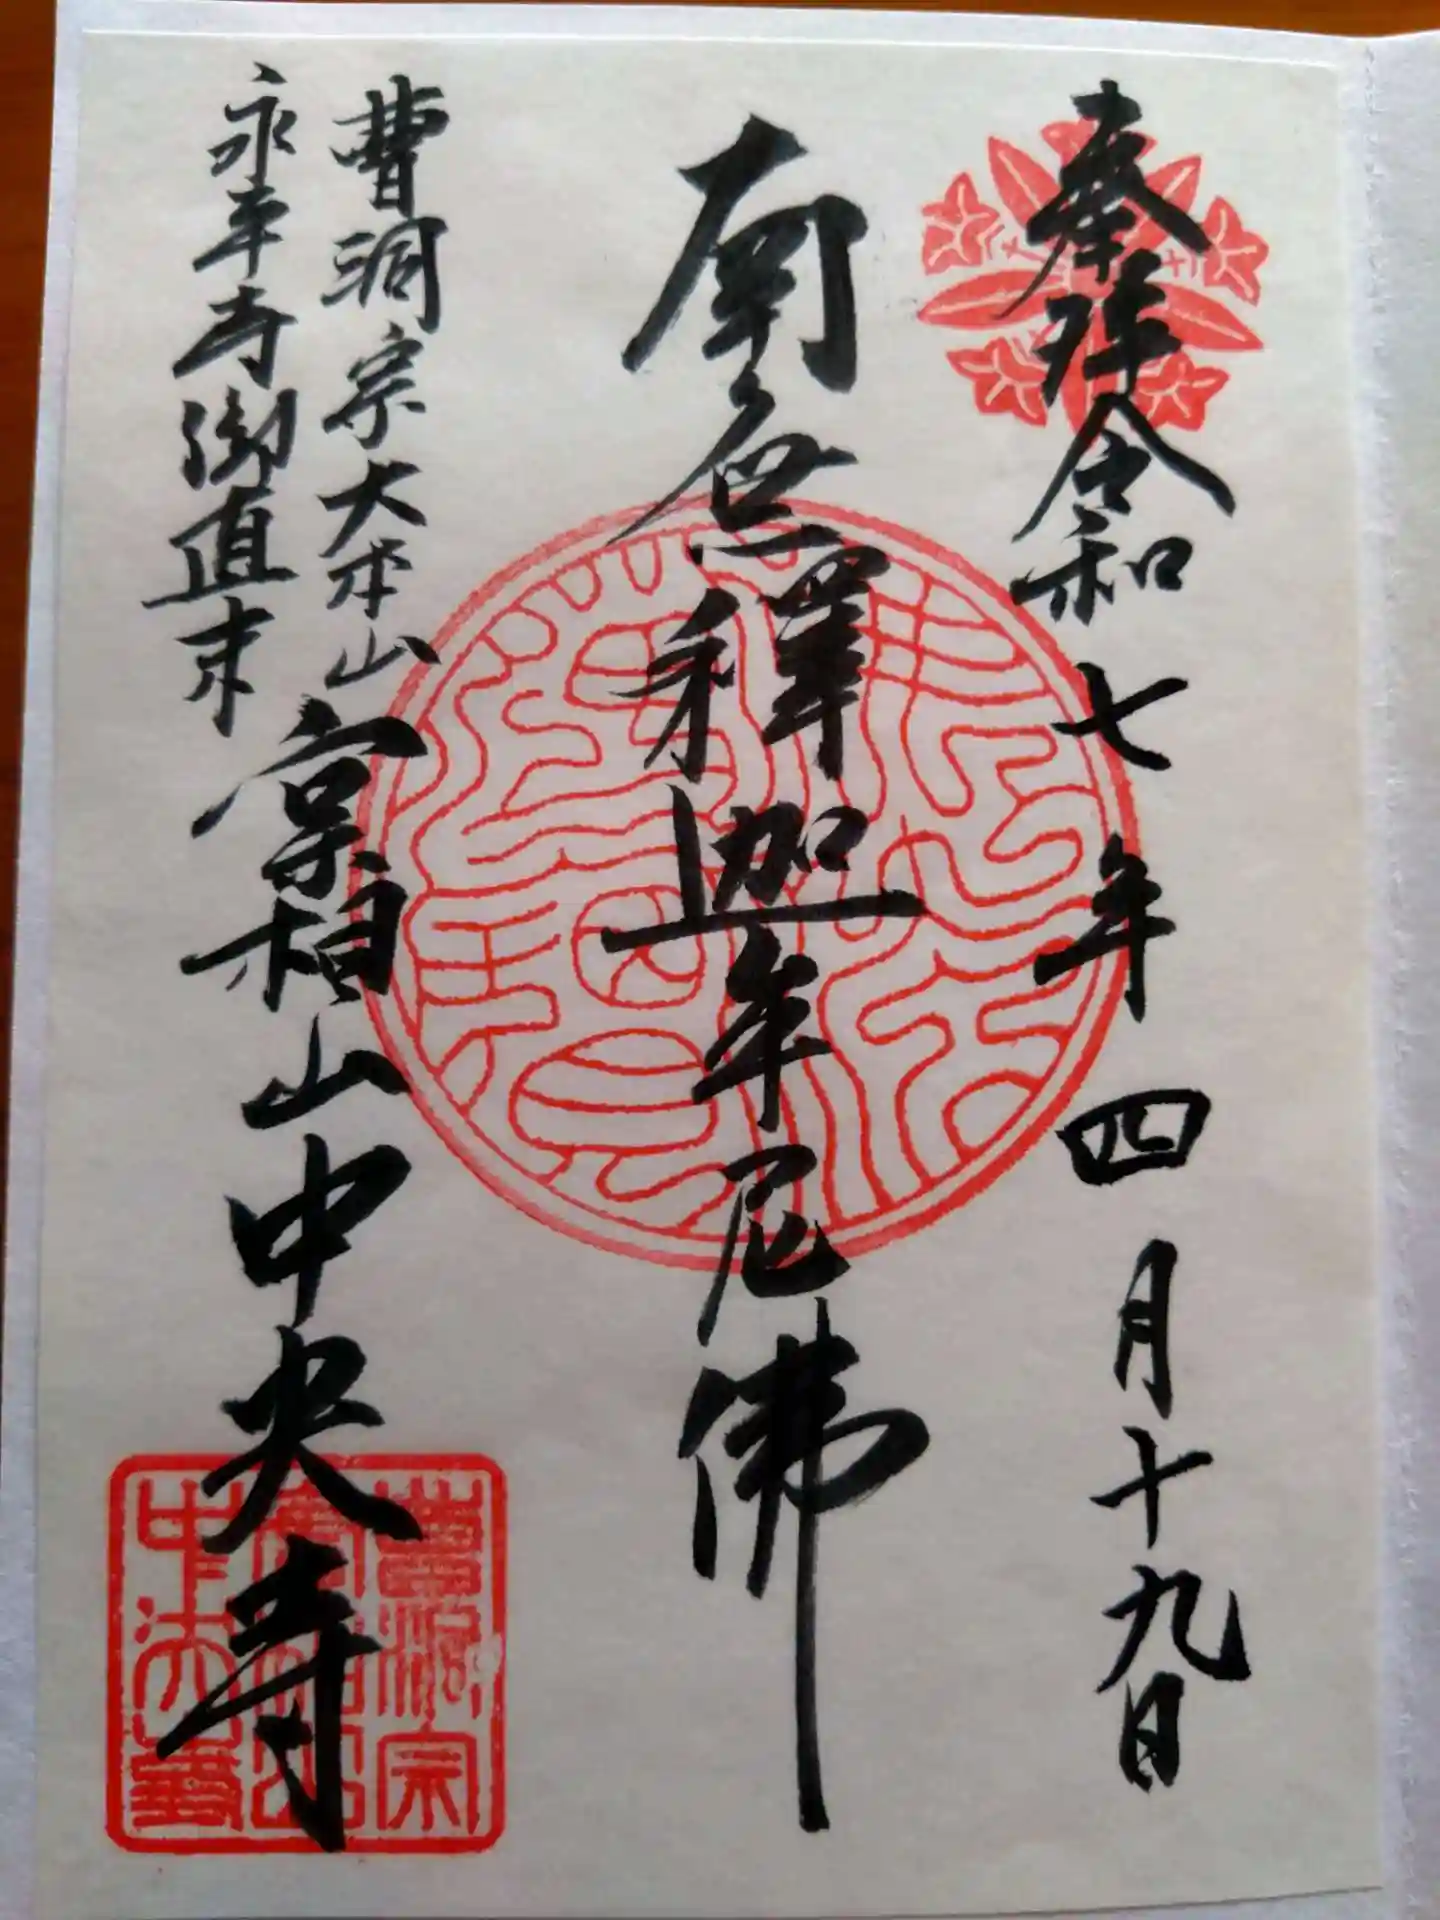 奉拝 令和七年四月十九日
南無釋迦牟尼佛
曹洞宗大本山
永平寺御直末
山中央寺
曹洞宗
中央寺